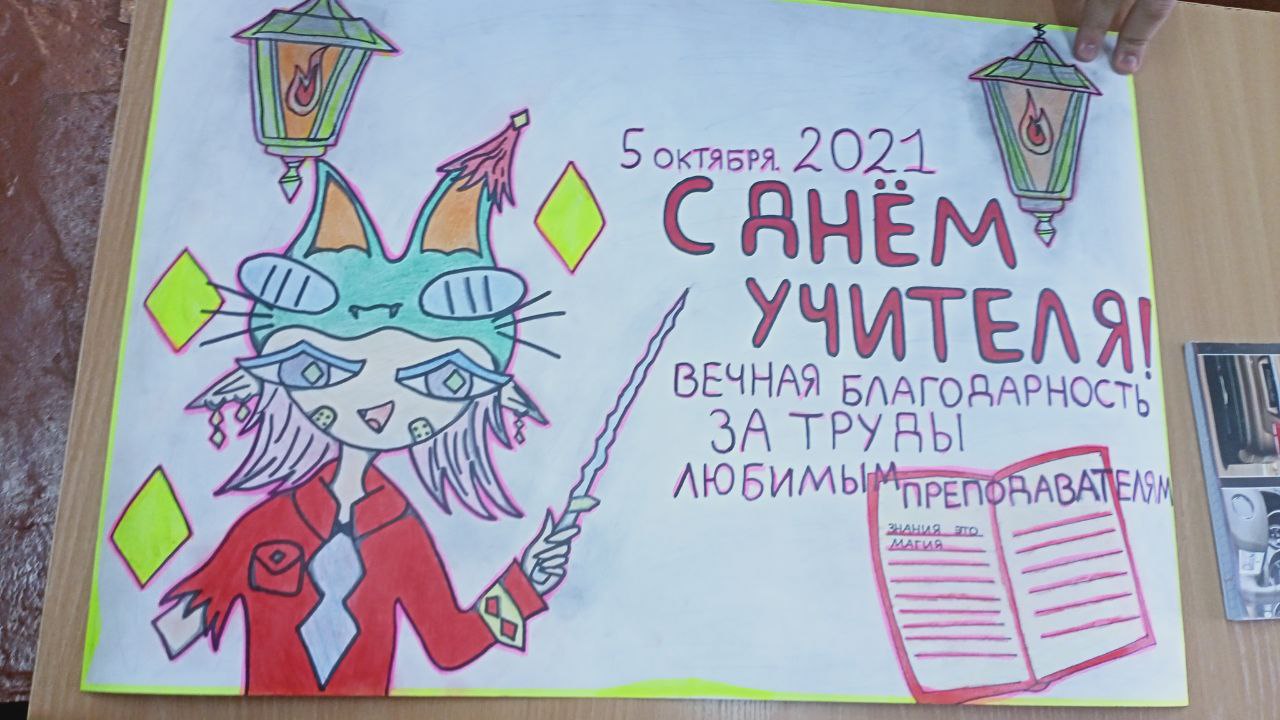 5 ОКТЯБРЯ. 2021
С ДНЁМ
УЧИТЕЛЯ!
ВЕЧНАЯ БЛАГОДАРНОСТЬ
ЗА ТРУДЫ
ЛЮБИМЫМ ПРЕПОДАВАТЕЛЯМ
ЗНАНИЯ ЭТО
МАГИЯ